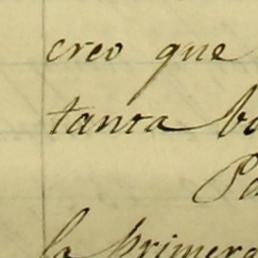 creo que
tanta
la primera